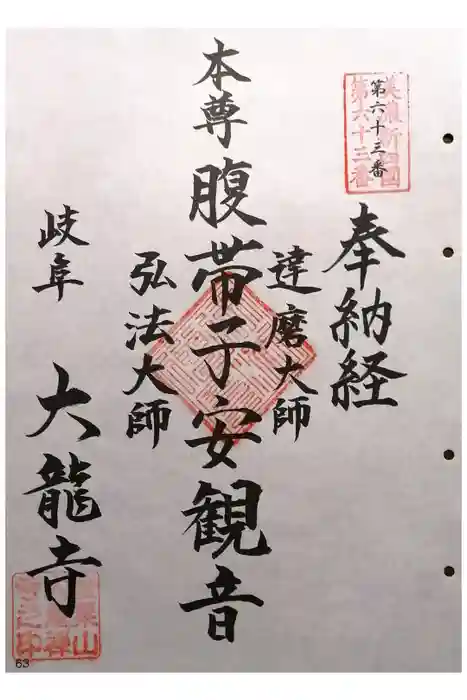 美濃新四国
第六十三番
第六十三番
奉納経
達磨大師
本尊腹帯子安観音
弘法大師
岐阜
大龍寺
63